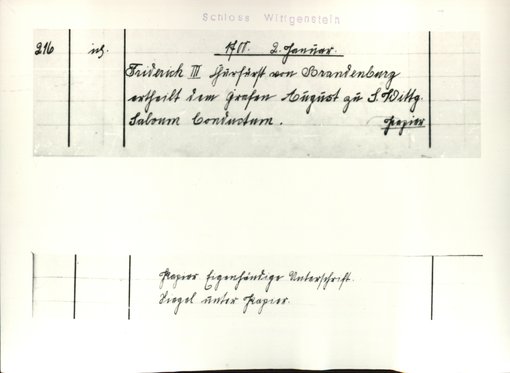 Schloss Wittgenstein
216
2. Januar.
Friderich III Churfürst von Brandenburg
ertheilt dem Grafen August zu S. Wittg.
Salvum Conductum. Papier
Papier Eigenhändige Unterschrift.
Siegel unter Papier.